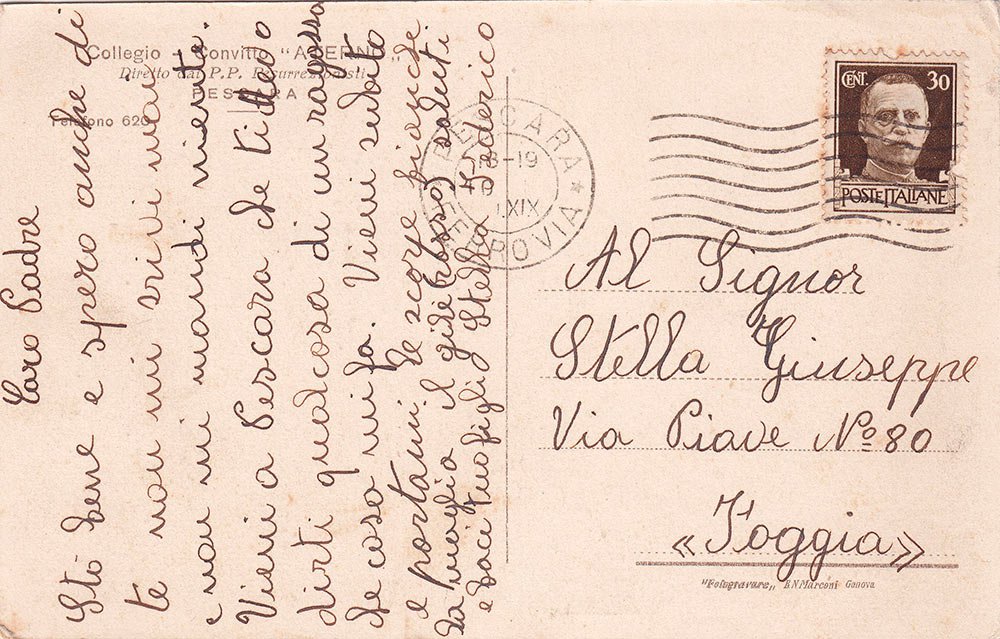 Collegio - Convitto "ATERNO"
Diretto dai P.P. Resurrezionisti
PESCARA
Telefono 620
Caro Padre
Stò bene e spero anche di
te non mi scrivi mai
e non mi mandi niente.
Vieni a Pescara che ti devo
dirti qualcosa di un ragazzo
che cosa mi fa. Vieni subito
e portami le scarpe bianche
la maglia il gilè rosso saluti
e baci tuo figlio Stella Federico
PESCARA
8-19
XIX
FERROVIA
CENT. 30
POSTE ITALIANE
Al Signor
Stella Giuseppe
Via Piave Nº 80
«Foggia»
"Fotogravure„ E.N. Marconi Genova